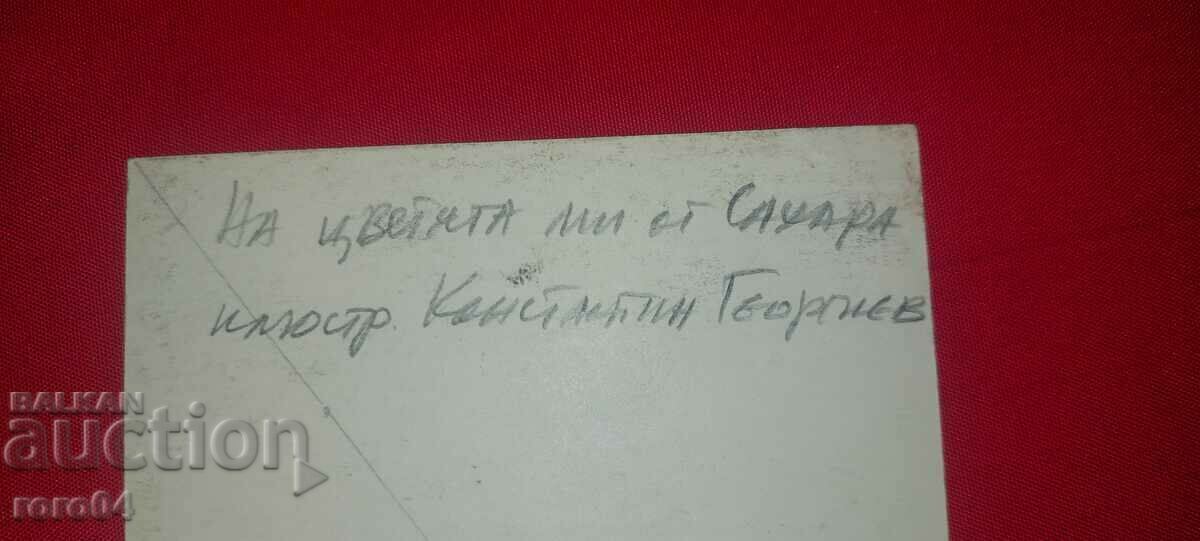 На цветята ми от Сахара
илюстр. Константин Георгиев
BALKAN
auction
roro04